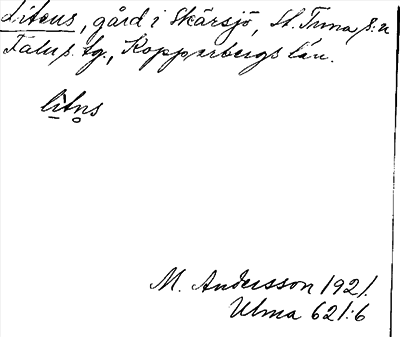 Litens, gård i Skärsjö, St. Tuna s:n
Falu s. tg., Kopparbergs län.
M. Andersson 1921.
Ulma 621:6